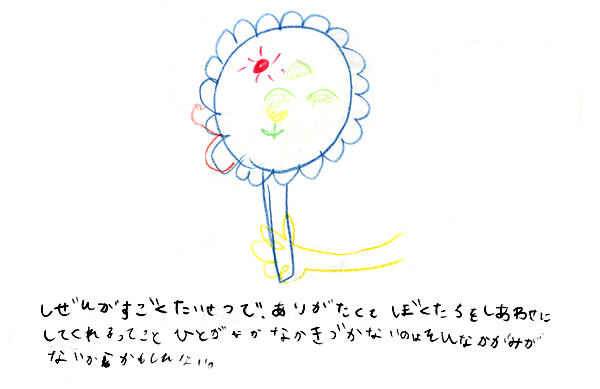 しぜんがすごくたいせつで、ありがたくて ぼくたちをしあわせに
してくれるってこと ひとがなかなかきづかないのはそんなかがみが
ないからかもしれない。